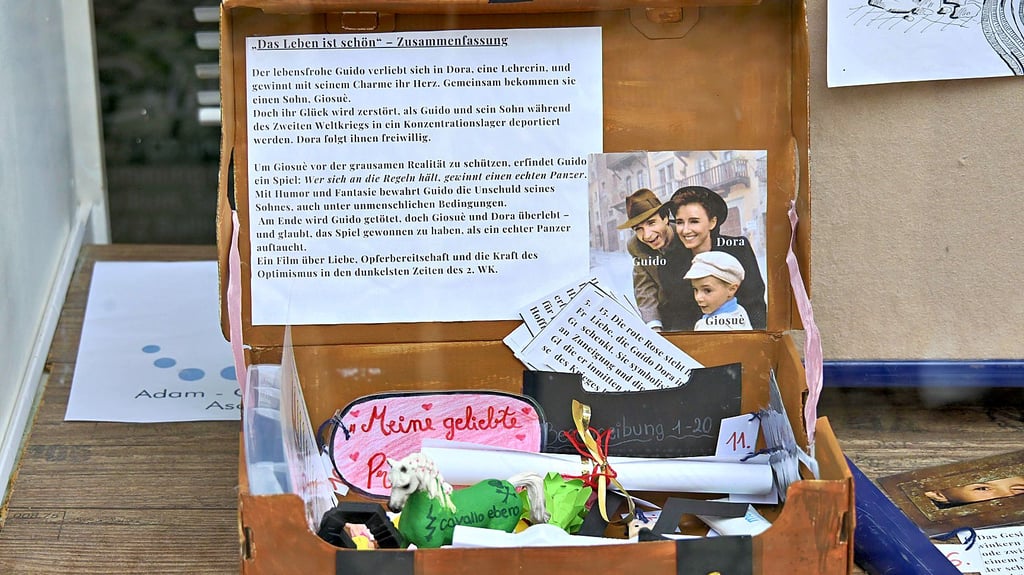 „Das Leben ist schön“ – Zusammenfassung
Der lebensfrohe Guido verliebt sich in Dora, eine Lehrerin, und
gewinnt mit seinem Charme ihr Herz. Gemeinsam bekommen sie
einen Sohn, Giosuè.
Doch ihr Glück wird zerstört, als Guido und sein Sohn während
des Zweiten Weltkriegs in ein Konzentrationslager deportiert
werden. Dora folgt ihnen freiwillig.
Um Giosuè vor der grausamen Realität zu schützen, erfindet Guido
ein Spiel: Wer sich an die Regeln hält, gewinnt einen echten Panzer.
Mit Humor und Fantasie bewahrt Guido die Unschuld seines
Sohnes, auch unter unmenschlichen Bedingungen.
Am Ende wird Guido getötet, doch Giosuè und Dora überlebt –
und glaubt, das Spiel gewonnen zu haben, als ein echter Panzer
auftaucht.
Ein Film über Liebe, Opferbereitschaft und die Kraft des
Optimismus in den dunkelsten Zeiten des 2. WK.
Dora
Guido
Giosuè
15. Die rote Rose steht
Liebe, die Guido Dora
schenkt. Sie symboli
an Zuneigung und
die er inmitten
se des Krieges
Adam -
„Meine geliebte
Pr
bung 1-20
11.
cavallo ebero
Das Gesi
winkern
ode zwi